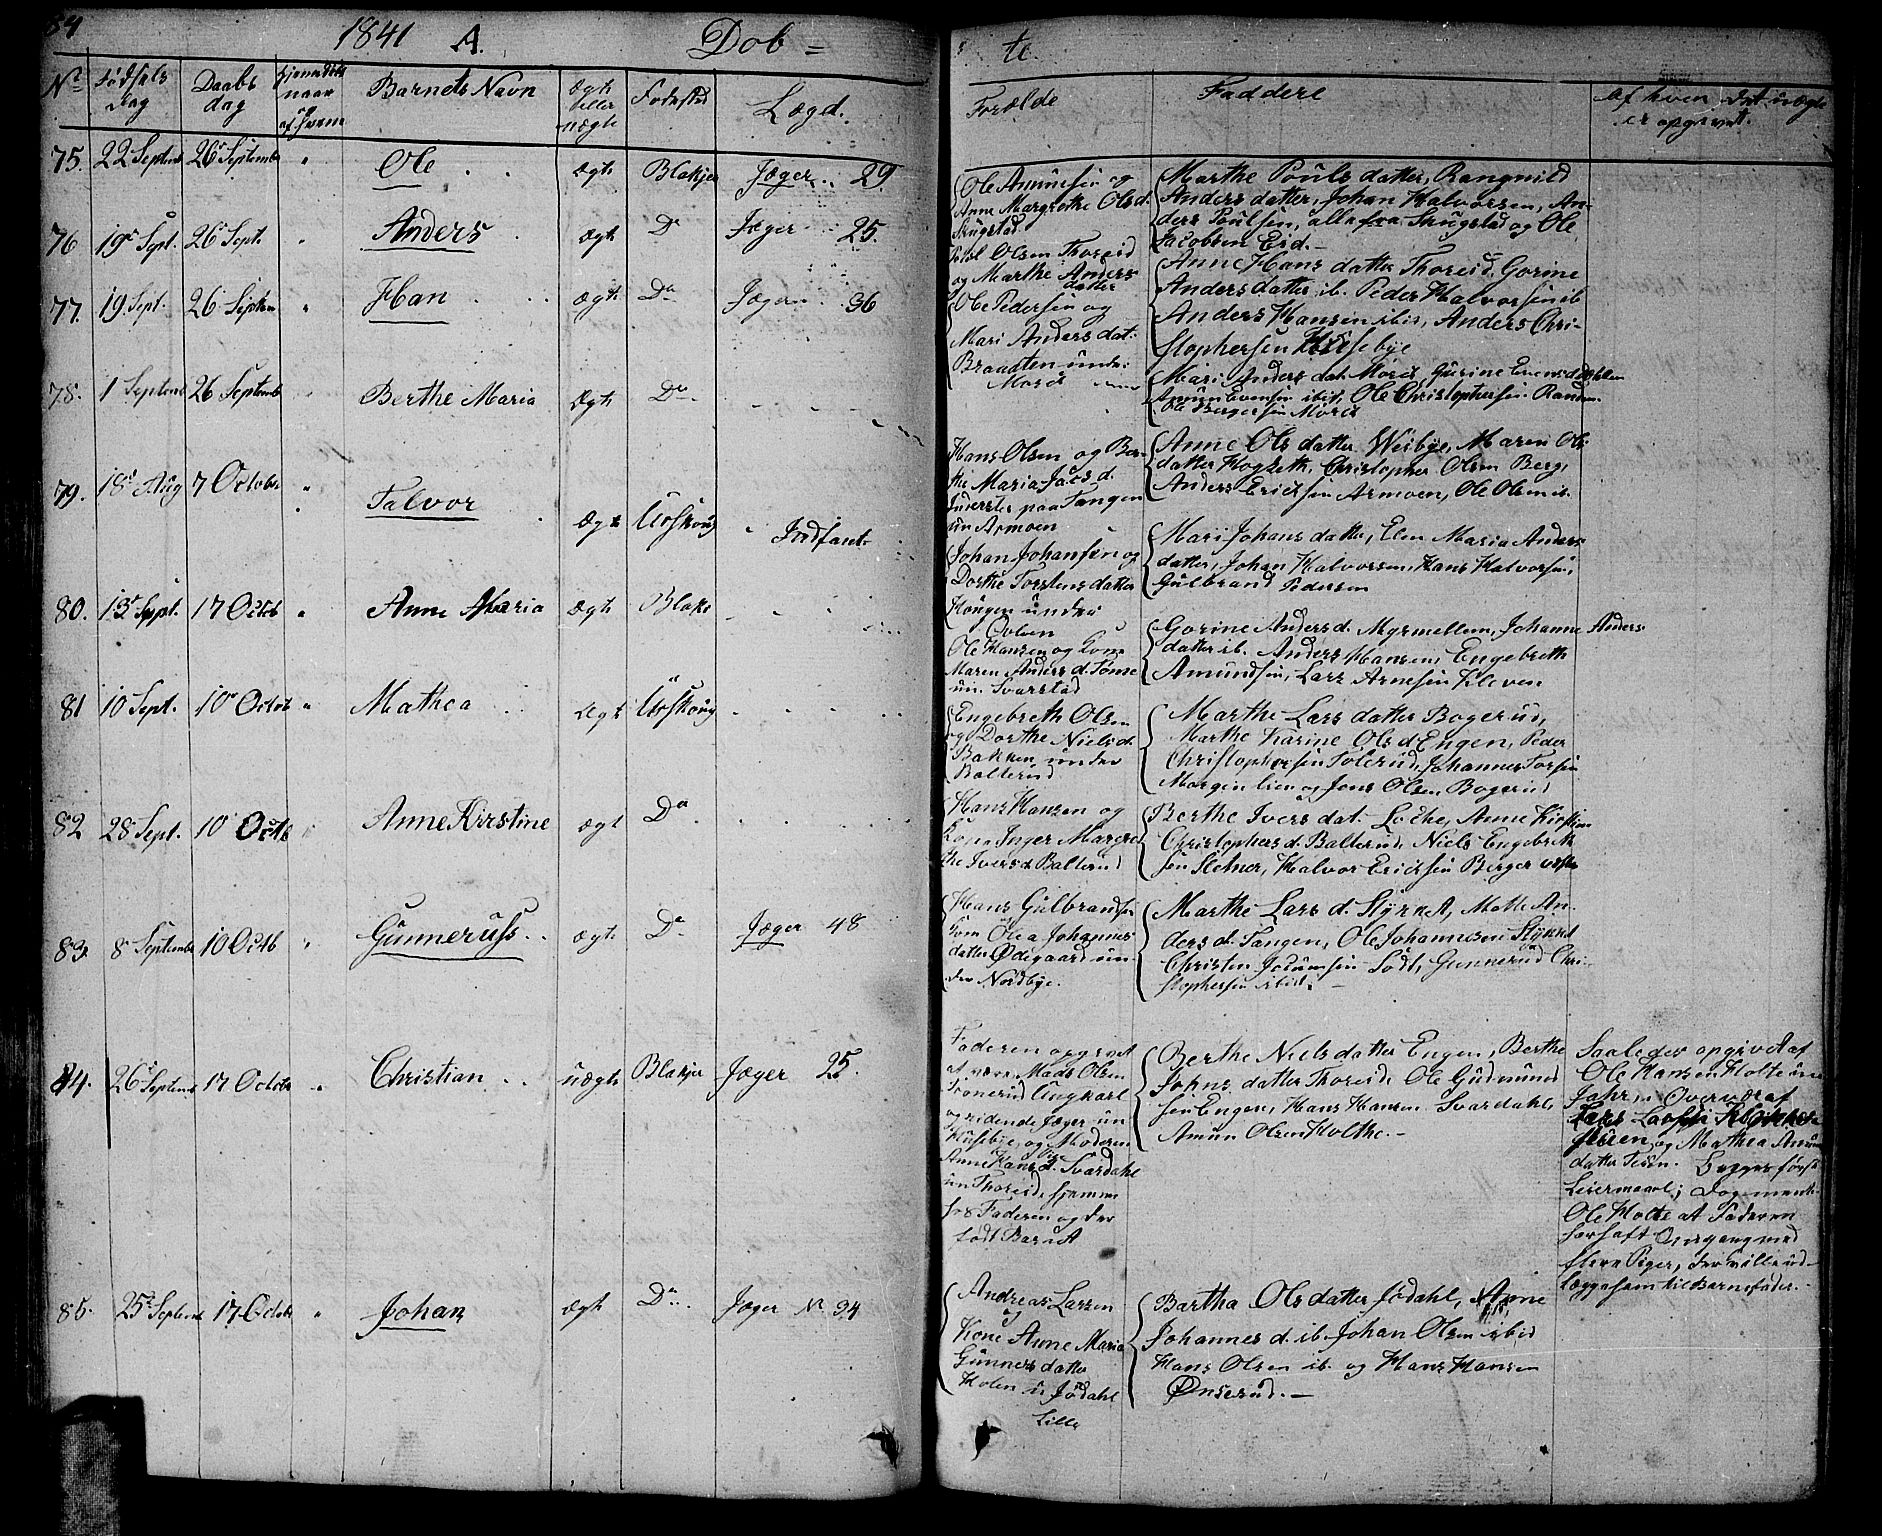 34 1841 A. Dob = te
Nr Fødsels Dag Daabs dag hjemedøbt naar og af hvem Barnets Navn Ægte eller uægte Fødested Lægd. Forældre Faddere Af hvem det uægte er opgivet.
75. 22 Septemb 26 Septembr " Ole . . ægte Blakjer Jæger . . 29
Ole Amundsen og
Anne Margrethe Olsd.
Skrugstad
Marthe Pouls datter, Rangnild
Anders datter, Johan Halvorsen, An-
ders Poulsen, alle fra Skrugstad og Ole
Jacobsen Eid. –
76 19 Sept. 26 Sept. " Anders . ægte Do Jæger 25.
Olsen Thoreid
og Marthe Anders
datter
Anne Hans datter Thoreid, Gorine
Anders datter ib. Peder Halvorsen ib
Anders Hansen ibid, Anders Chri-
stophersen Husebye
77. 19 Sept. 26 Septem " Han . . . ægte Do Jæger . . 36
Ole Pedersen og
Mari Anders dat.
Braadten under
Moreid
Mari Anders dat. Gurine Evensd.
Amun Evensen ibid, Ole Christophersen
Ole Bergersen
78. 1 Septemb 26 Septemb " Berthe Maria ægte Do . . . .
Hans Olsen og Ber-
the Maria Jacs d.
Inderster paa Tangen
un Armoen
Anne Ols datter Weibye, Maren Ols
datter Hogseth, Christopher Olsen Berg,
Anders Ericksen Armoen, Ole Olsen ib.
79. 18 Aug 7 October " Talvor . ægte Urskoug " Indfant.
Johan Johansen og
Dorthe Torstens datter
Haugen under
Ovlien
Mari Johans datter, Elen Maria Anders
datter, Johan Halvorsen, Hans Halvorsen,
Gulbrand Pedersen
80. 13 Sept. 17 Octob " Anne Maria ægte Blake . . .
Ole Hansen og Kone
Maren Anders d.
un. Svarstad
Gorine Anders d. Myrmellem, Johanne Anders
datter ib. Anders Hansen, Engebreth
Amundsen, Lars Arnesen Kleven
81 10 Sept. 10 Octob " Mathea . . ægte Urskoug . . . . .
Engebreth Olsen
og Dorthe Niels d.
Bakken under
Balterud
Marthe Lars datter Bogerud,
Marthe Karine Ols d Engen, Peder
Christophersen Tolerud, Johannes Torsen
og Jens Olsen Bogerud
82 28 Sept. 10 Octb " Anne Kirstine ægt Do . . . . .
Hans Hansen og
Kone Inger Margre
the Ivers d Balterud
Berthe Ivers dat. Locke, Anne Kirstin
Christophers d. Balterud, Niels Engebreth
sen Sletner, Halvor Ericksen Berger
83. 8 Septembr 10 Octb " Gunneruss . . ægte Do Jæger 48
Hans Gulbrandsen
Olea Johannes
datter Ødegaard un-
der Nordbye.
Marthe Lars d. Stykket, Mathe An-
ders d. Tangen, Ole Johannesen Stykket
Christen Sødt, Gunnerud Chri-
stophersen ibid. –
84. 26 Septemb 17 Octobr " Christian . . uægte Blakjer Jæger 25.
Faderen opgivet
at være Mads Olsen
Tronerud Ungkarl
og ridende Jæger un
Husebye, og Moderen
Pige
Anne Hans d. Svardahl
un Thoreid,
for Faderen og der
født Barnet
Berthe Niels datter Engen, Berthe
Johns datter Thoreid, Ole Gudmund
sen Engen, Hans Hansen Svardahl,
Amun Olsen Holthe. –
Saaledes opgivet af
Ole Hansen Holte un
Jahr, i Overvær af
Lars Larsen
og Mathea Amun
datter. Begges første
Leiermaal; dog mente
Ole Holte at Faderen
har haft Omgang med
flere Piger, der ville ud-
lægge ham til Barnefader. –
85. 25 Septemb 17 Octobr " Johan ægt Do . Jæger Nr 34
Andreas Larsen
og
Kone Anne Maria
Gunners datter
Holen u Jødahl
Lille
Bartha Ols datter Jødahl, Anne
Johannes d. ib. Johan Olsen ibid
Hans Olsen ib. og Hans Hansen
Ønserud. –